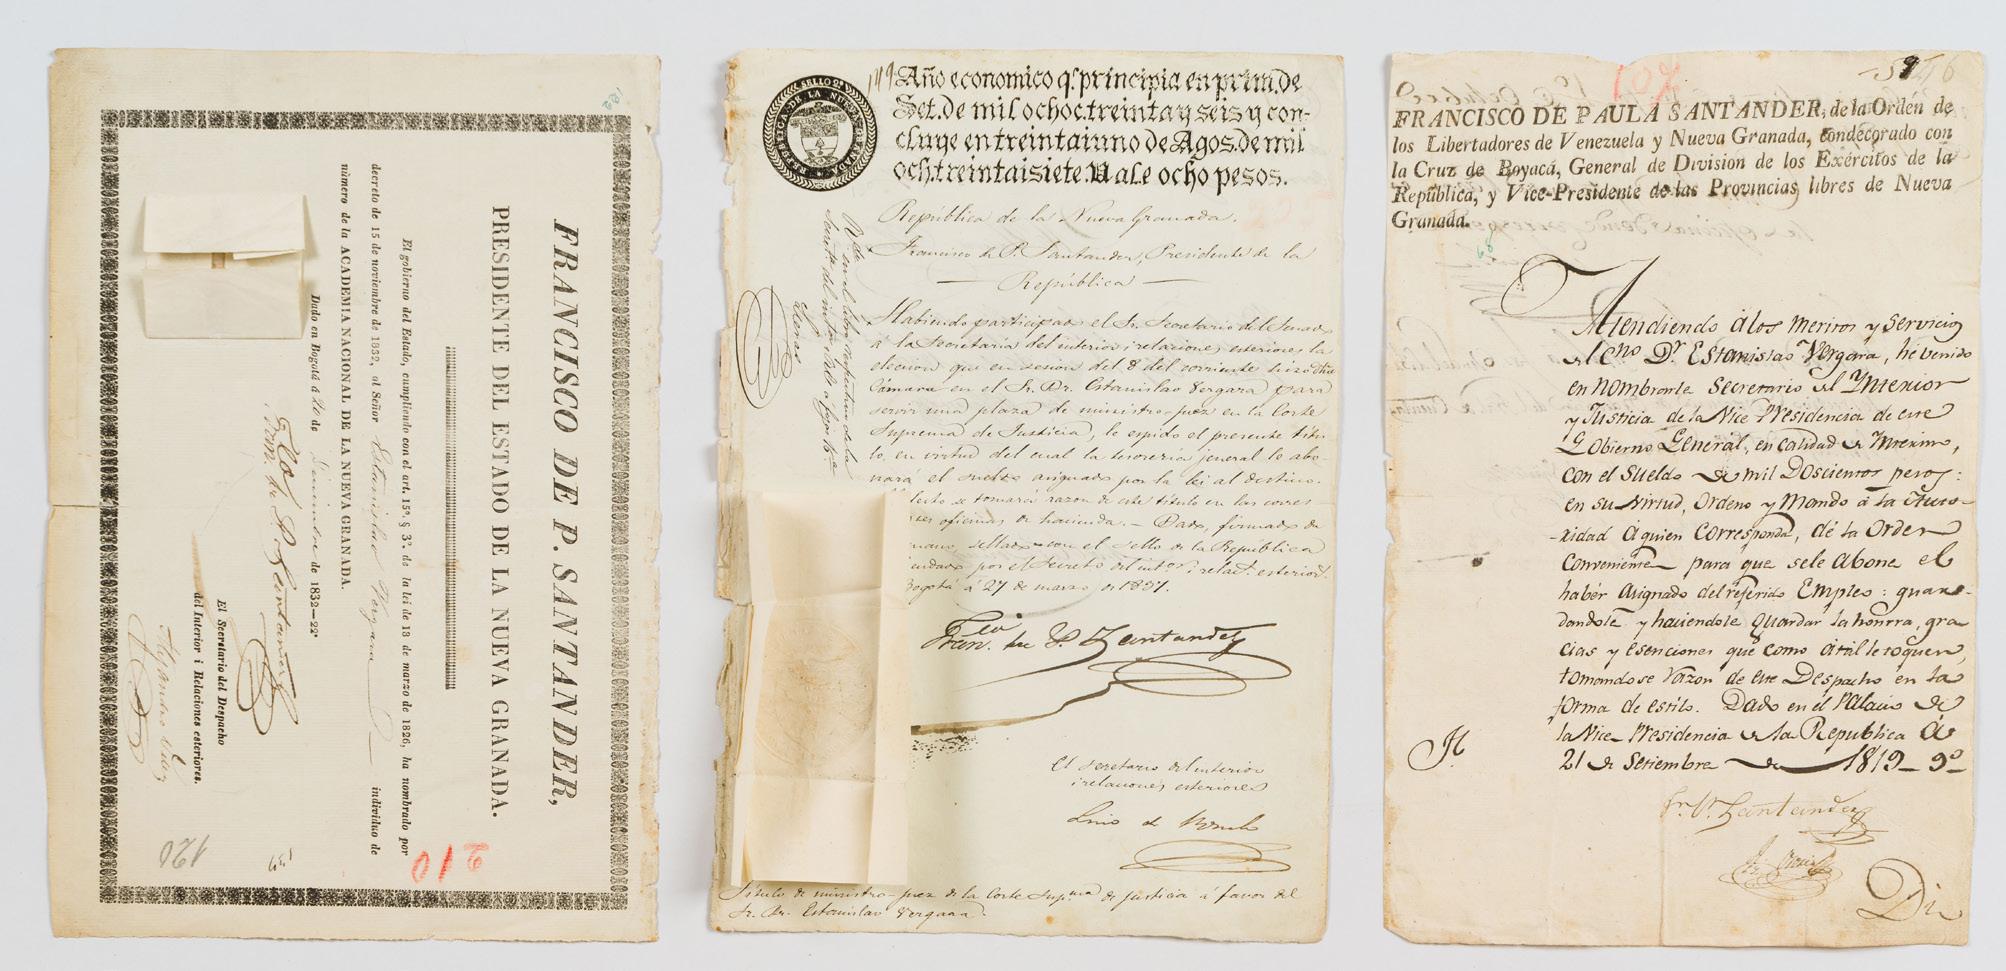 122
FRANCISCO DE P. SANTANDER,
PRESIDENTE DEL ESTADO DE LA NUEVA GRANADA.
El gobierno del Estado, cumpliendo con el art. 15º. § 3º. de la lei de 13 de marzo de 1826, ha nombrado por
decreto de 15 de noviembre de 1832, al Señor Estanislao Vergara individuo de
número de la ACADEMIA NACIONAL DE LA NUEVA GRANADA.
Dado en Bogotá á 20 de Diciembre de 1832—22º
Fran. de P. Santander
El Secretario del Despacho
del Interior i Relaciones esteriores.
210
139
120
SELLO 2º
REPUBLICA DE LA NUEVA GRANADA
Año economico q.e principia en prim.o de
Set. de mil ochoc. treinta y seis y con-
cluye en treintaiuno de Agos. de mil
och. treintaisiete. Vale ocho pesos.
República de la Nueva Granada.
Francisco de P. Santander, Presidente de la
República
Habiendo participado el Sr. Secretario del Senado
á la Secretaría del interior i relaciones esteriores la
eleccion que en sesion del 8 del corriente hizo dha
Cámara en el Sr. Dr. Estanislao Vergara para
servir una plaza de ministro-juez en la Corte
Suprema de Justicia, le espido el presente títu-
lo, en virtud del cual la tesorería jeneral le abo-
nará el sueldo asignado por la lei al destino.
se tomará razon de este título en las corres
oficinas de hacienda. — Dado, firmado de
mano, sellado con el sello de la República
por el Secreto. del int.or i relac.s esterior.s
Bogotá á 27 de marzo de 1837.
Fran.co de P. Santander
El secretario del interior
i relaciones esteriores
Lino de Pombo
Título de ministro-juez de la Corte Sup.ma de justicia á favor del
Sr. Dr. Estanislao Vergara.
107
FRANCISCO DE PAULA SANTANDER, de la Orden de
los Libertadores de Venezuela y Nueva Granada, condecorado con
la Cruz de Boyacá, General de Division de los Exércitos de la
República, y Vice-Presidente de las Provincias libres de Nueva
Granada.
Atendiendo á los meritos y servicios
del Cno Dr. Estanislao Vergara, he venido
en nombrarle Secretario del Interior
y Justicia de la Vice Presidencia de este
Gobierno General, en calidad de Interino,
con el sueldo de mil doscientos pesos:
en su virtud, ordeno y mando á la Auto-
ridad á quien corresponda, dé la orden
conveniente para que se le abone el
habér asignado del referido Empleo: guar-
dandole y haciendole guardar la honrra, gra
cias y esenciones que como á tál le toquen,
tomandose razon de este Despacho en la
forma de estilo. Dado en el Palacio de
la Vice-Presidencia de la Republica á
21 de Setiembre de 1819_9º_
Santander